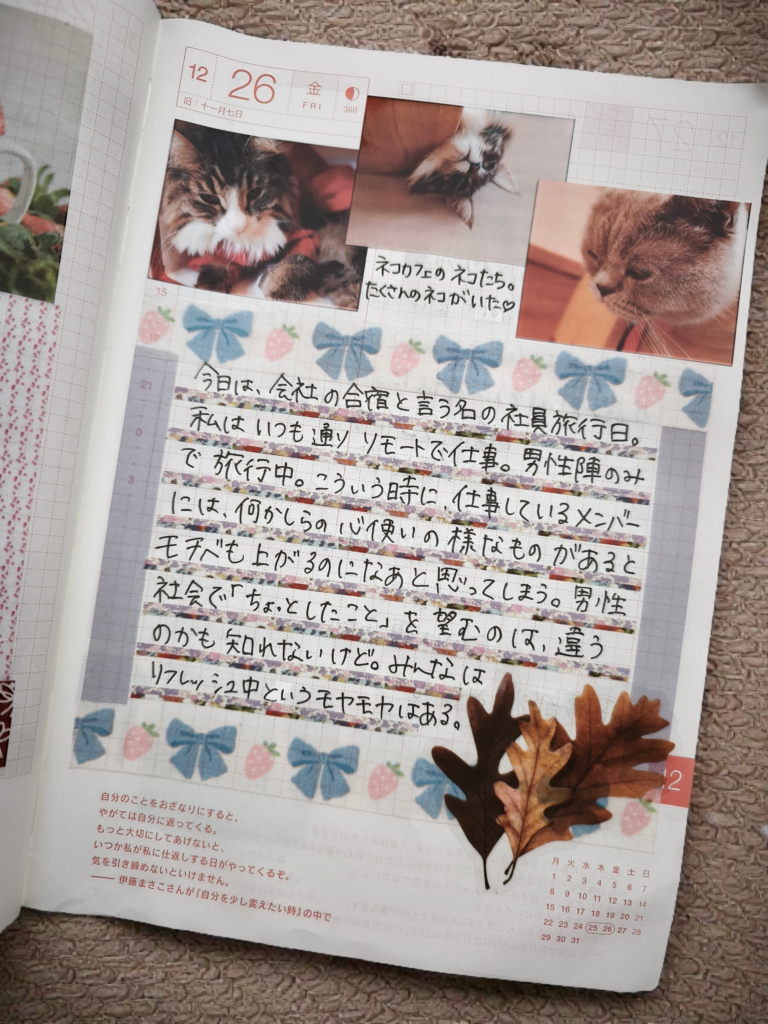 12
26
金
FRI
360
旧:十一月七日
ネコカフェの ネコたち。
たくさんのネコがいた♡
15
18
21
0
3
今日は、会社の合宿と言う名の社員旅行日。
私はいつも通り リモートで仕事。男性陣のみ
で 旅行中。こういう時に、仕事しているメンバー
には、何かしらの 心使いの 様なものがあると
モチベも上がるのになあと思ってしまう。男性
社会で「ちょっとしたこと」を 望むのは、違う
のかも 知れないけど。みんなは
リフレッシュ中というモヤモヤはある。
12
自分のことをおざなりにすると、
やがては自分に返ってくる。
もっと大切にしてあげないと、
いつか私が私に仕返しする日がやってくるぞ。
気を引き締めないといけません。
── 伊藤まさこさんが『自分を少し変えたい時』の中で
月 火 水 木 金 土 日
1 2 3 4 5 6 7
8 9 10 11 12 13 14
15 16 17 18 19 20 21
22 23 24 25 26 27 28
29 30 31